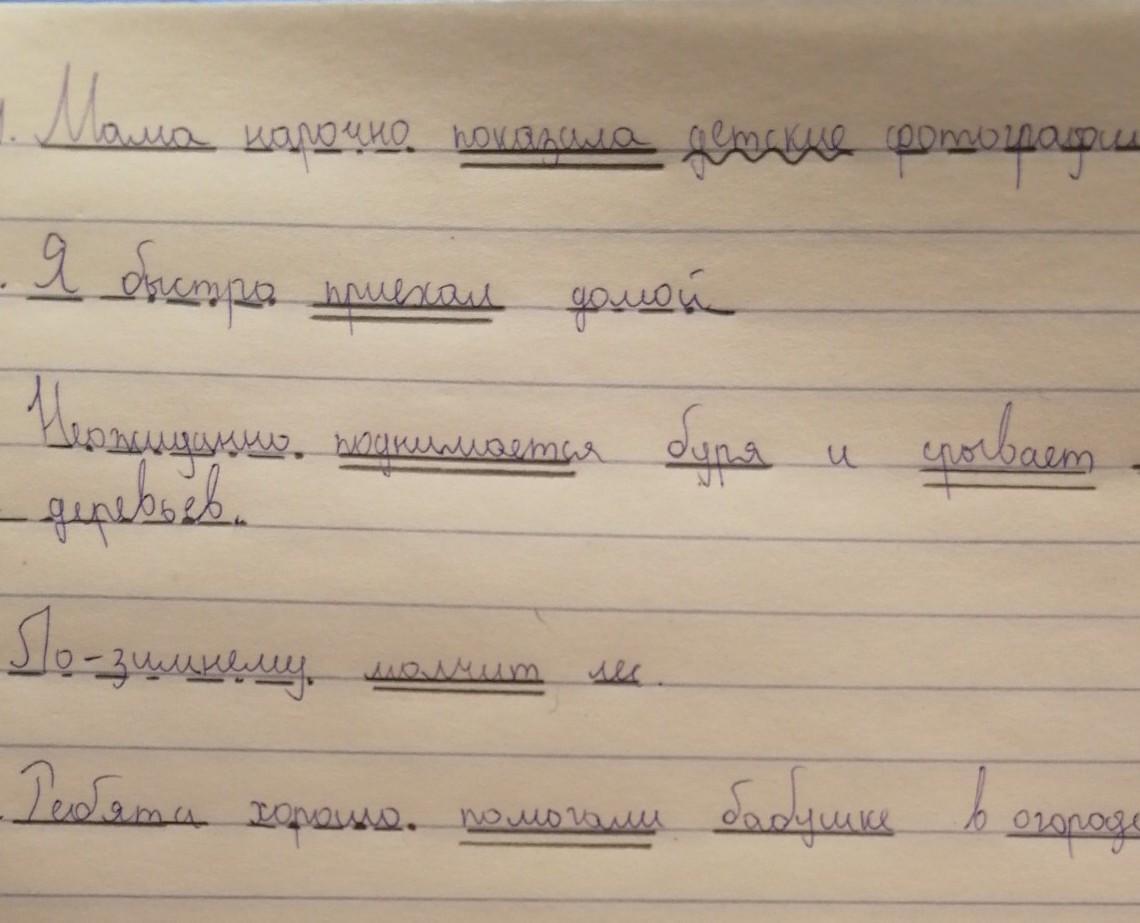 1. Мама нарочно показала детские фотографии
. Я быстро приехал домой
Неожиданно поднимается буря и срывает
деревьев.
По-зимнему молчит лес.
. Ребята хорошо помогали бабушке в огороде